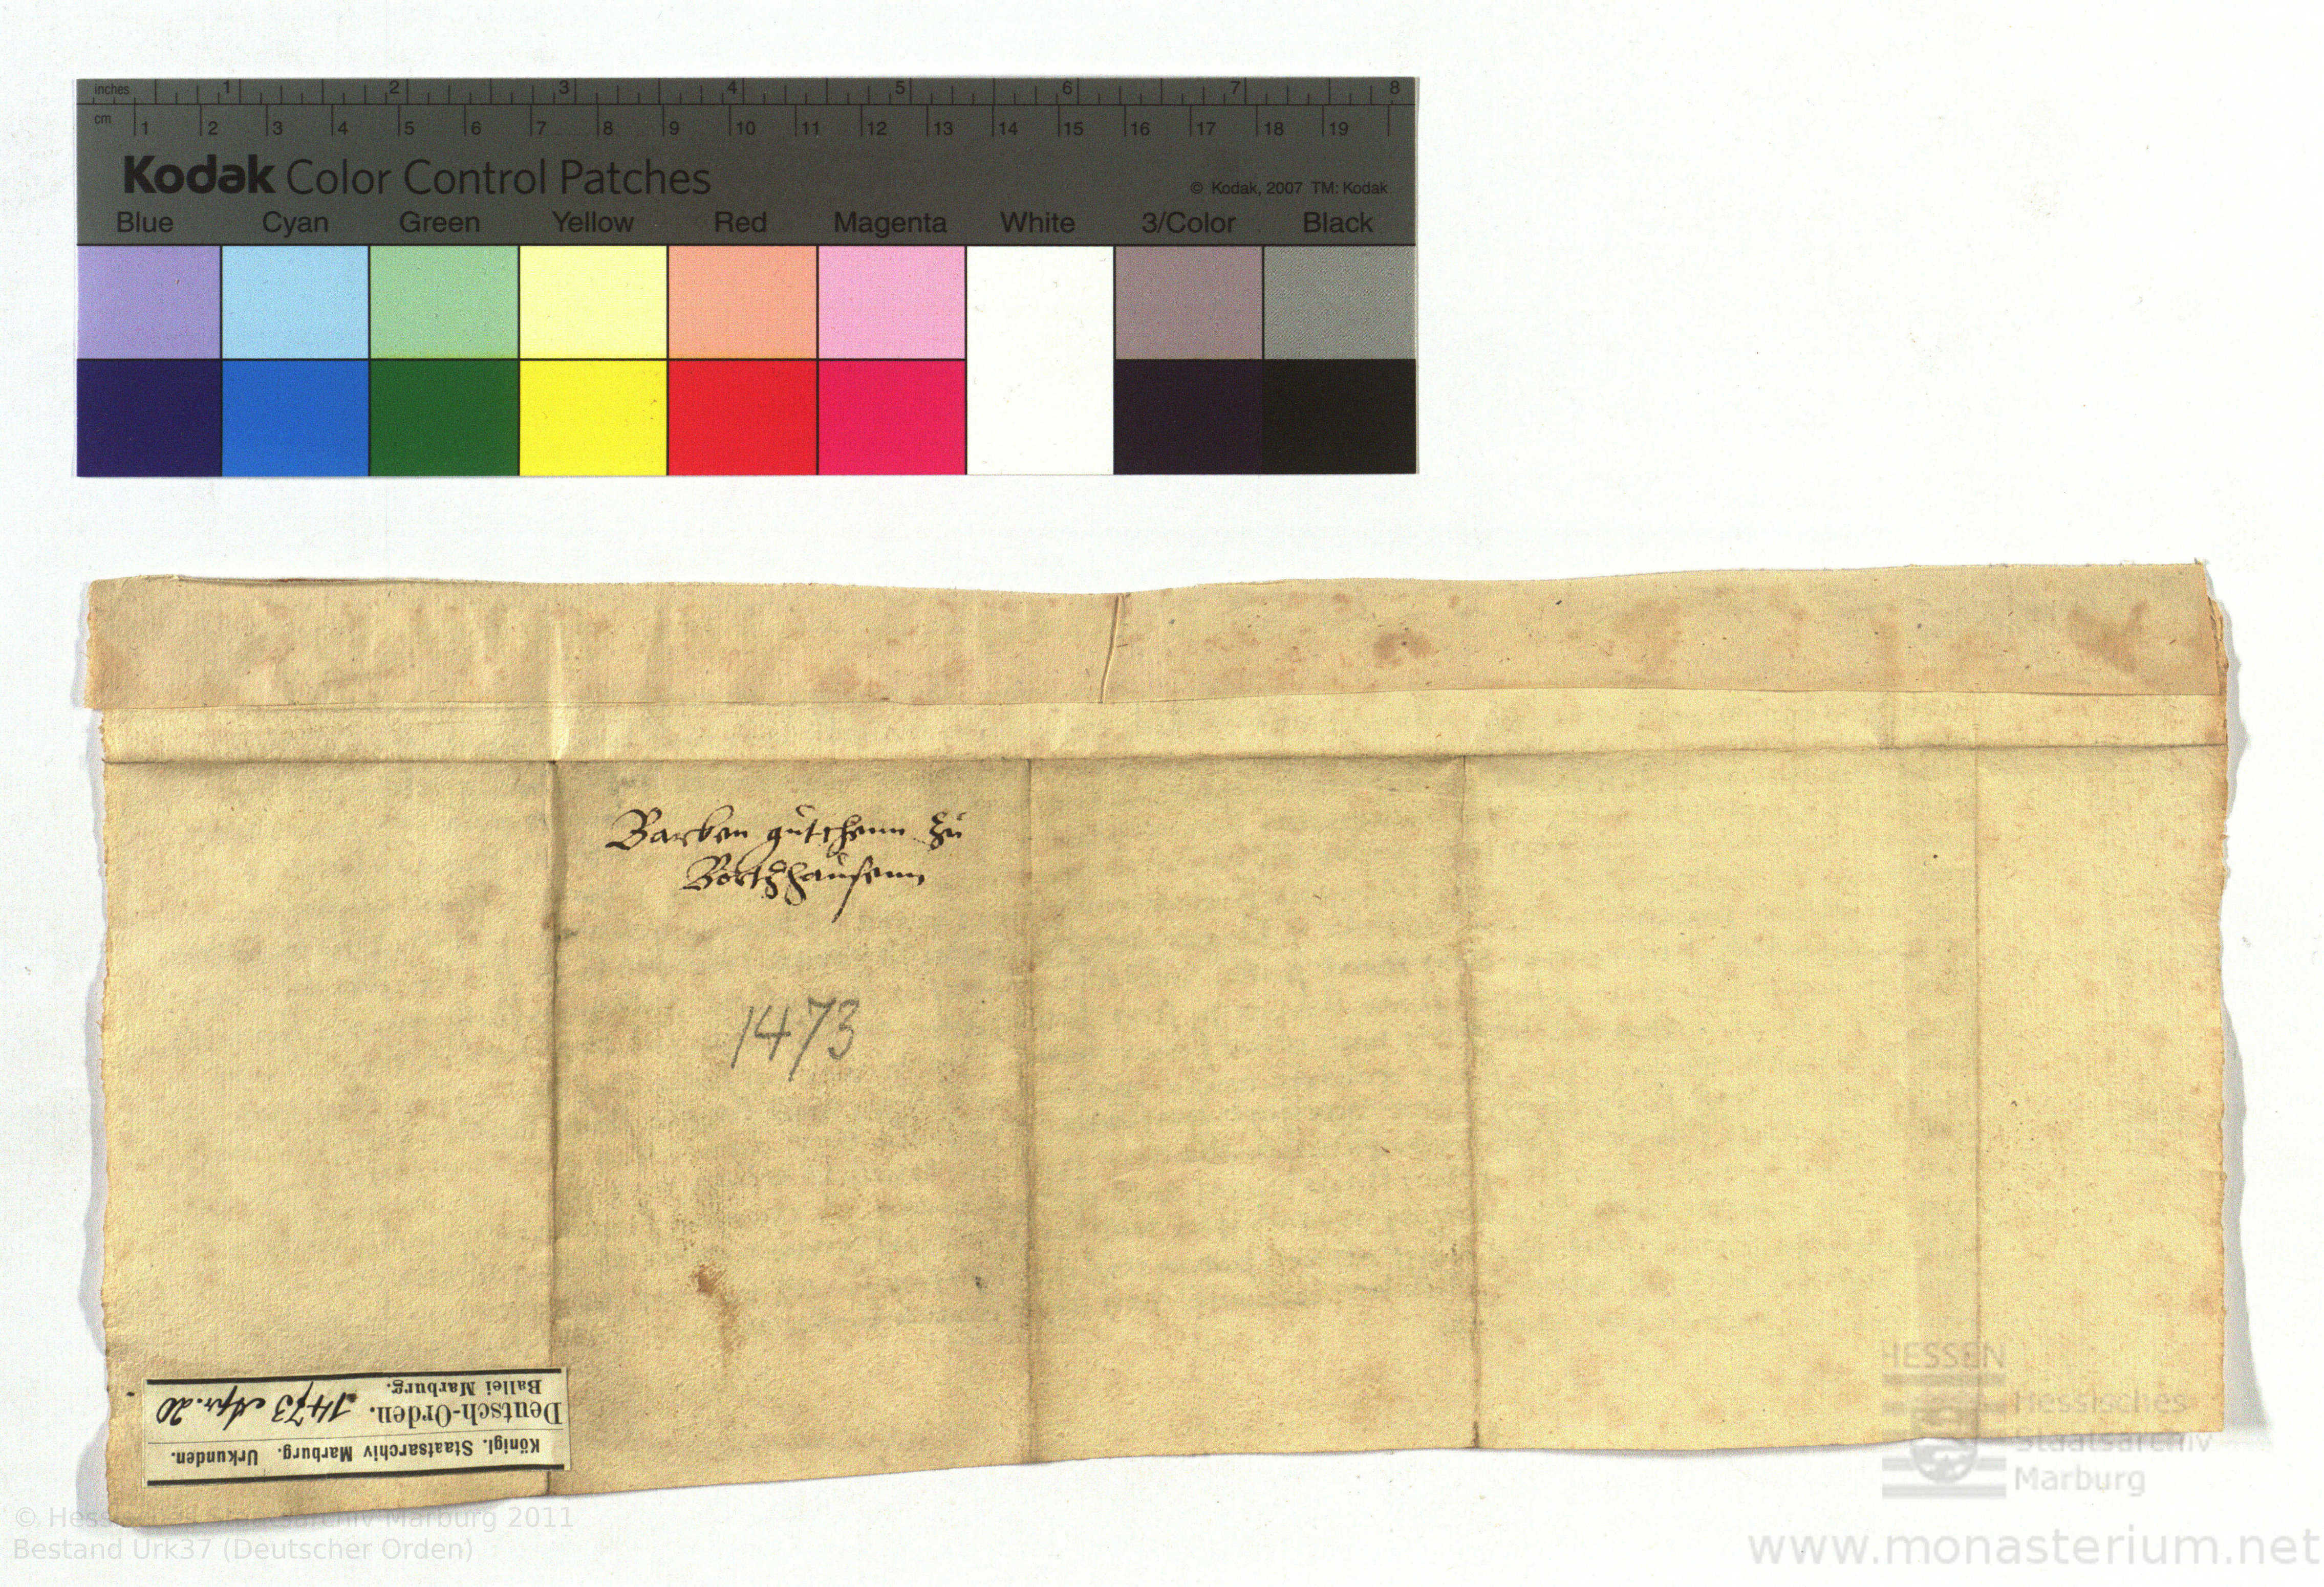 inches 1 2 3 4 5 6 7 8
cm 1 2 3 4 5 6 7 8 9 10 11 12 13 14 15 16 17 18 19
Kodak Color Control Patches
© Kodak, 2007 TM: Kodak
Blue Cyan Green Yellow Red Magenta White 3/Color Black
Barben gütchenn zu
Bortzhausenn
1473
Königl. Staatsarchiv Marburg. Urkunden.
Deutsch-Orden. 1473 Apr. 20
Ballei Marburg.
HESSEN
Hessisches
Staatsarchiv
Marburg
© Hessisches Staatsarchiv Marburg 2011
Bestand Urk37 (Deutscher Orden)
www.monasterium.net